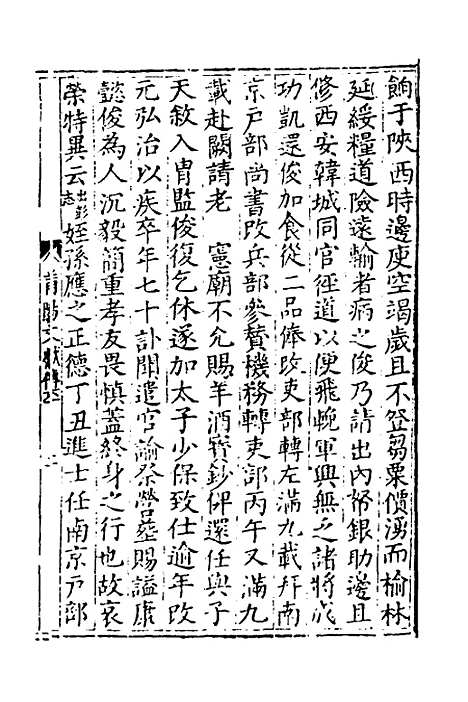 餉于陜西時邊庾空竭歲且不登芻粟價湧而榆林
延綏糧道險遠輸者病之俊乃請出內帑銀助邊且
修西安韓城同官徑道以便飛輓軍興無乏諸將成
功凱還俊加食從二品俸改吏部轉左滿九載拜南
京戶部尚書改兵部參贊機務轉吏部丙午又滿九
載赴闕請老　憲廟不允賜羊酒寶鈔俾還任與子
天敘入胄監俊復乞休遂加太子少保致仕逾年改
元弘治以疾卒年七十訃聞遣官諭祭營葬賜謚康
懿俊為人沉毅簡重孝友畏慎蓋終身之行也故哀
榮特異云出彭志姪孫應之正德丁丑進士任南京戶部
莆陽文獻傳